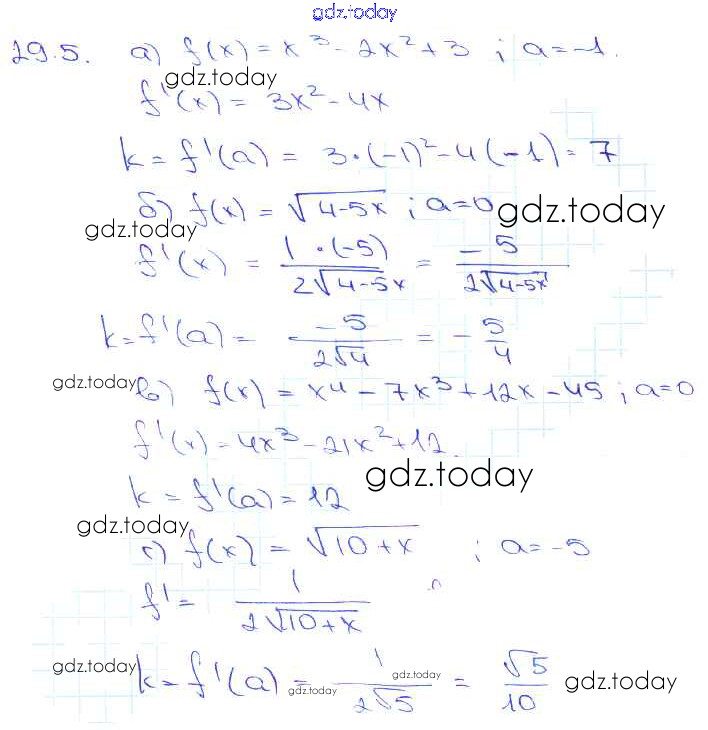 gdz.today
29.5. а) f(x) = x³ - 2x² + 3 ; a = -1.
gdz.today
f'(x) = 3x² - 4x
k = f'(a) = 3·(-1)² - 4(-1) = 7
б) f(x) = √(4-5x) ; a=0 gdz.today
gdz.today
f'(x) = (1·(-5))/(2√(4-5x)) = (-5)/(2√(4-5x))
k = f'(a) = (-5)/(2√4) = -5/4
gdz.today в) f(x) = x⁴ - 7x³ + 12x - 45 ; a=0
f'(x) = 4x³ - 21x² + 12.
k = f'(a) = 12 gdz.today
gdz.today
г) f(x) = √(10+x) ; a = -5
f' = 1/(2√(10+x))
gdz.today k = f'(a) = 1/(2√5) = √5/10 gdz.today
gdz.today
gdz.today